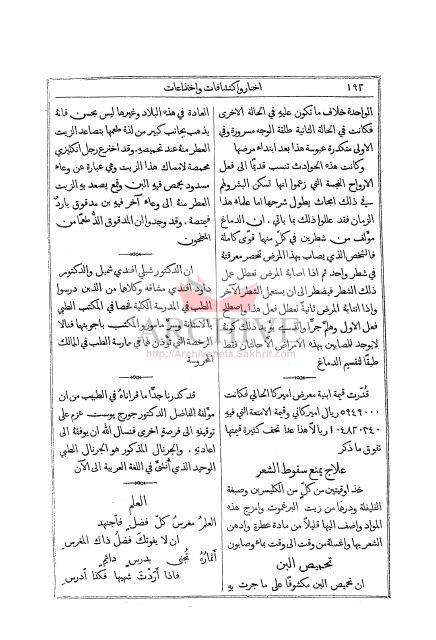 اخبار واكتشافات واختراعات
١٩٢
الواحدة خلاف ما تكون عليهِ في الحالة الاخرى
فكانت في الحالة الثانية طلقة الوجه مسرورة وفي
الاولى متكدرة عبوسة هذا بعد ابتداء مرضها
وكانت هذه الحوادث تنسب قديمًا الى فعل
الارواح النجسة التي زعموا انها تسكن البشر ولهم
في ذلك ابحاث يطول شرحها اما علماء هذا
الزمان فقد عللوا ذلك بما يأتي. ان الدماغ
مؤلف من شطرين في كلٍّ منها قوى كاملة
فالشخص الذي يصاب بهذا المرض تنحصر معرفتهُ
في شطر واحد ثم اذا اصابهُ المرض تعطل عمل
ذلك الشطر فيضطر الى ان يستعمل الشطر الآخر
واذا انتابهُ المرض ثانيةً تعطل فعل هذا واصطلح
فعل الاول وهلم جرًّا
لا يوجد للمصابين بهذه الامراض الا حالتان فقط
طبقًا لتقسيم الدماغ
قُدّرت قيمة ابنية معرض اميركا الحالي فكانت
ريال اميركاني وقيمة الامتعة التي فيهِ
ريالًا هذا عدا تحف كثيرة قيمتها
تفوق ما ذكر
علاج يمنع سقوط الشعر
خذ اوقيتين من كلٍّ من الكليسرين وصبغة
الفليفلة ودرهمًا من زيت البرغموت وامزج هذه
المواد واضف اليها قليلًا من مادة عطرة وادهن
الشعر بها واغسلهُ من وقت الى وقت بماء وصابون
تحميص البن
ان تحميص البن مكشوفًا على ما جرت بهِ
العادة في هذه البلاد وغيرها ليس بحسن فانهُ
يذهب بجانب كبير من لذة طعمها بتصاعد الزيت
العطر منهُ عند تحميصهِ. وقد اخترع رجل انكليزي
محمصة لامساك هذا الزيت وهي عبارة عن وعاء
مسدود يحمص فيهِ البن وقمع يصعد بهِ الزيت
العطر منهُ الى وعاء آخر فيهِ بن مدقوق بارد
فيمتصهُ. وقد وجدوا ان المدقوق الذّ طعمًا من
المطحون
ان الدكتور شبلي افندي شميل والدكتور
داود افندي مشاقه وكلاهما من الذين درسوا
الطب في المدرسة الكلية فحصا في المكتب الطبي
بالاستانة
الرخصة التي تؤذن لها في ممارسة الطب في الممالك
المحروسة
قد كدرنا جدًّا ما قرأناهُ في الطبيب من ان
مؤلفهُ الفاضل الدكتور جورج پوست عزم على
توقيفهِ الى فرصة اخرى فنسأل الله ان يوفقهُ الى
اعادتهِ. والجرنال المذكور هو الجرنال الطبي
الوحيد الذي أُنشئ في اللغة العربية الى الآن
العلم
العلمُ مغرسُ كلّ فضلٍ فاجتهد
ان لا يفوتكَ فضلُ ذاك المغرسِ
أثمارهُ تُجنى بدرسٍ دائمٍ
فاذا أرَدْتَ شهيها فكذا آدرسِ
ARCHIVE
http://Archivebeta.Sakhrit.com